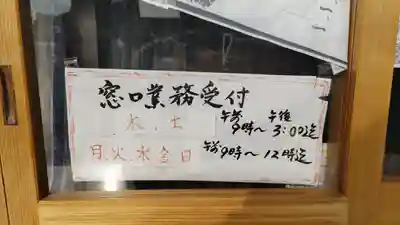 窓口業務受付
木、土 午前9時〜午後3:00迄
月、火、水、金、日 午前9時〜12時迄